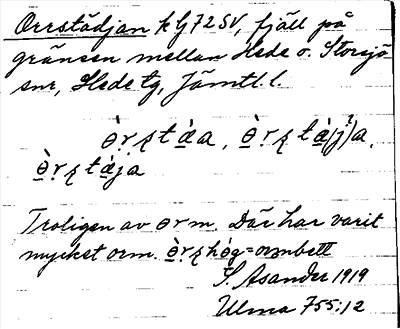 Orrstädjan k G72SV, fjäll på
gränsen mellan Hede o. Storsjö
snr, Hede tg, Jämtl. l.
ò̤rʂtä̀a, ò̤rʂtä̀(j)a,
ò̤rʂtä̀ja
Troligen av orm. Där har varit
mycket orm. = ormbett
T. Asander 1919
Ulma 755:12